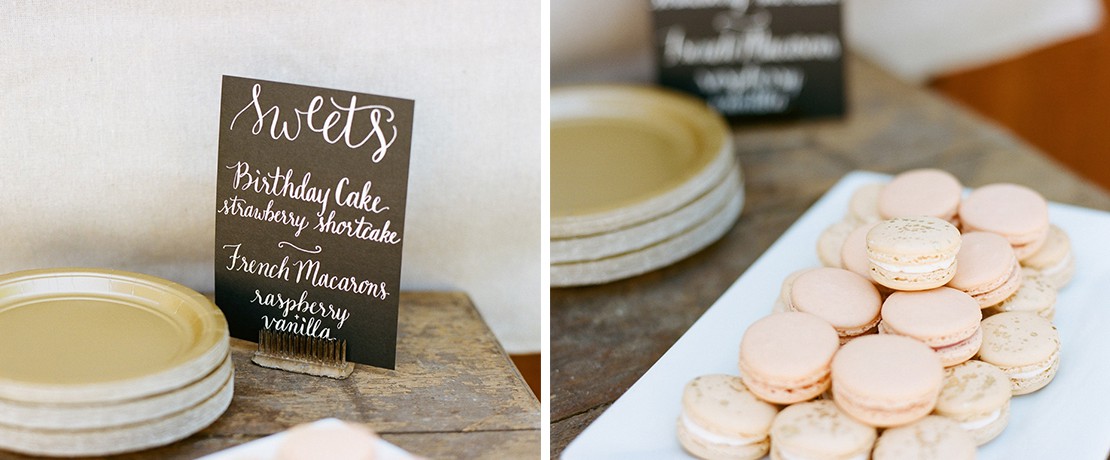 sweets
Birthday Cake
strawberry shortcake
French Macarons
raspberry
+
vanilla
French Macarons
raspberry
vanilla